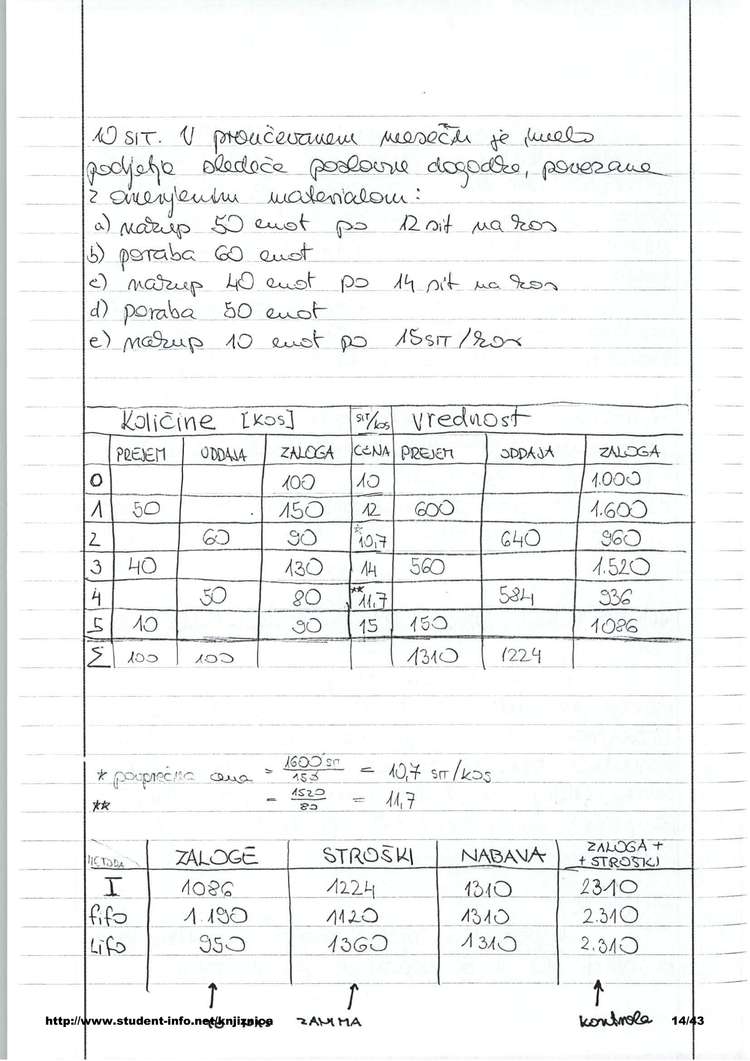 10 SIT. V proučevanem mesecu je imelo
podjetje sledeče poslovne dogodke, povezane
z omenjenim materialom:
a) nakup 50 enot po 12 sit na kos
b) poraba 60 enot
c) nakup 40 enot po 14 sit na kos
d) poraba 50 enot
e) nakup 10 enot po 15 SIT/kos
Količine [kos] SIT/kos Vrednost
PREJEM ODDAJA ZALOGA CENA PREJEM ODDAJA ZALOGA
0 100 10 1.000
1 50 150 12 600 1.600
2 60 90 *10,7 640 960
3 40 130 14 560 1.520
4 50 80 **11,7 584 936
5 10 90 15 150 1086
Σ 100 100 1310 1224
* povprečna cena = 1600 SIT / 150 = 10,7 SIT/kos
** = 1520 / = 11,7
METODA ZALOGE STROŠKI NABAVA ZALOGA +
+ STROŠKI
I 1086 1224 1310 2310
fifo 1.190 1120 1310 2.310
Lifo 950 1360 1310 2.310
↑ ↑ ↑
http://www.student-info.net/knjiznica ZANIMA kontrola 14/43